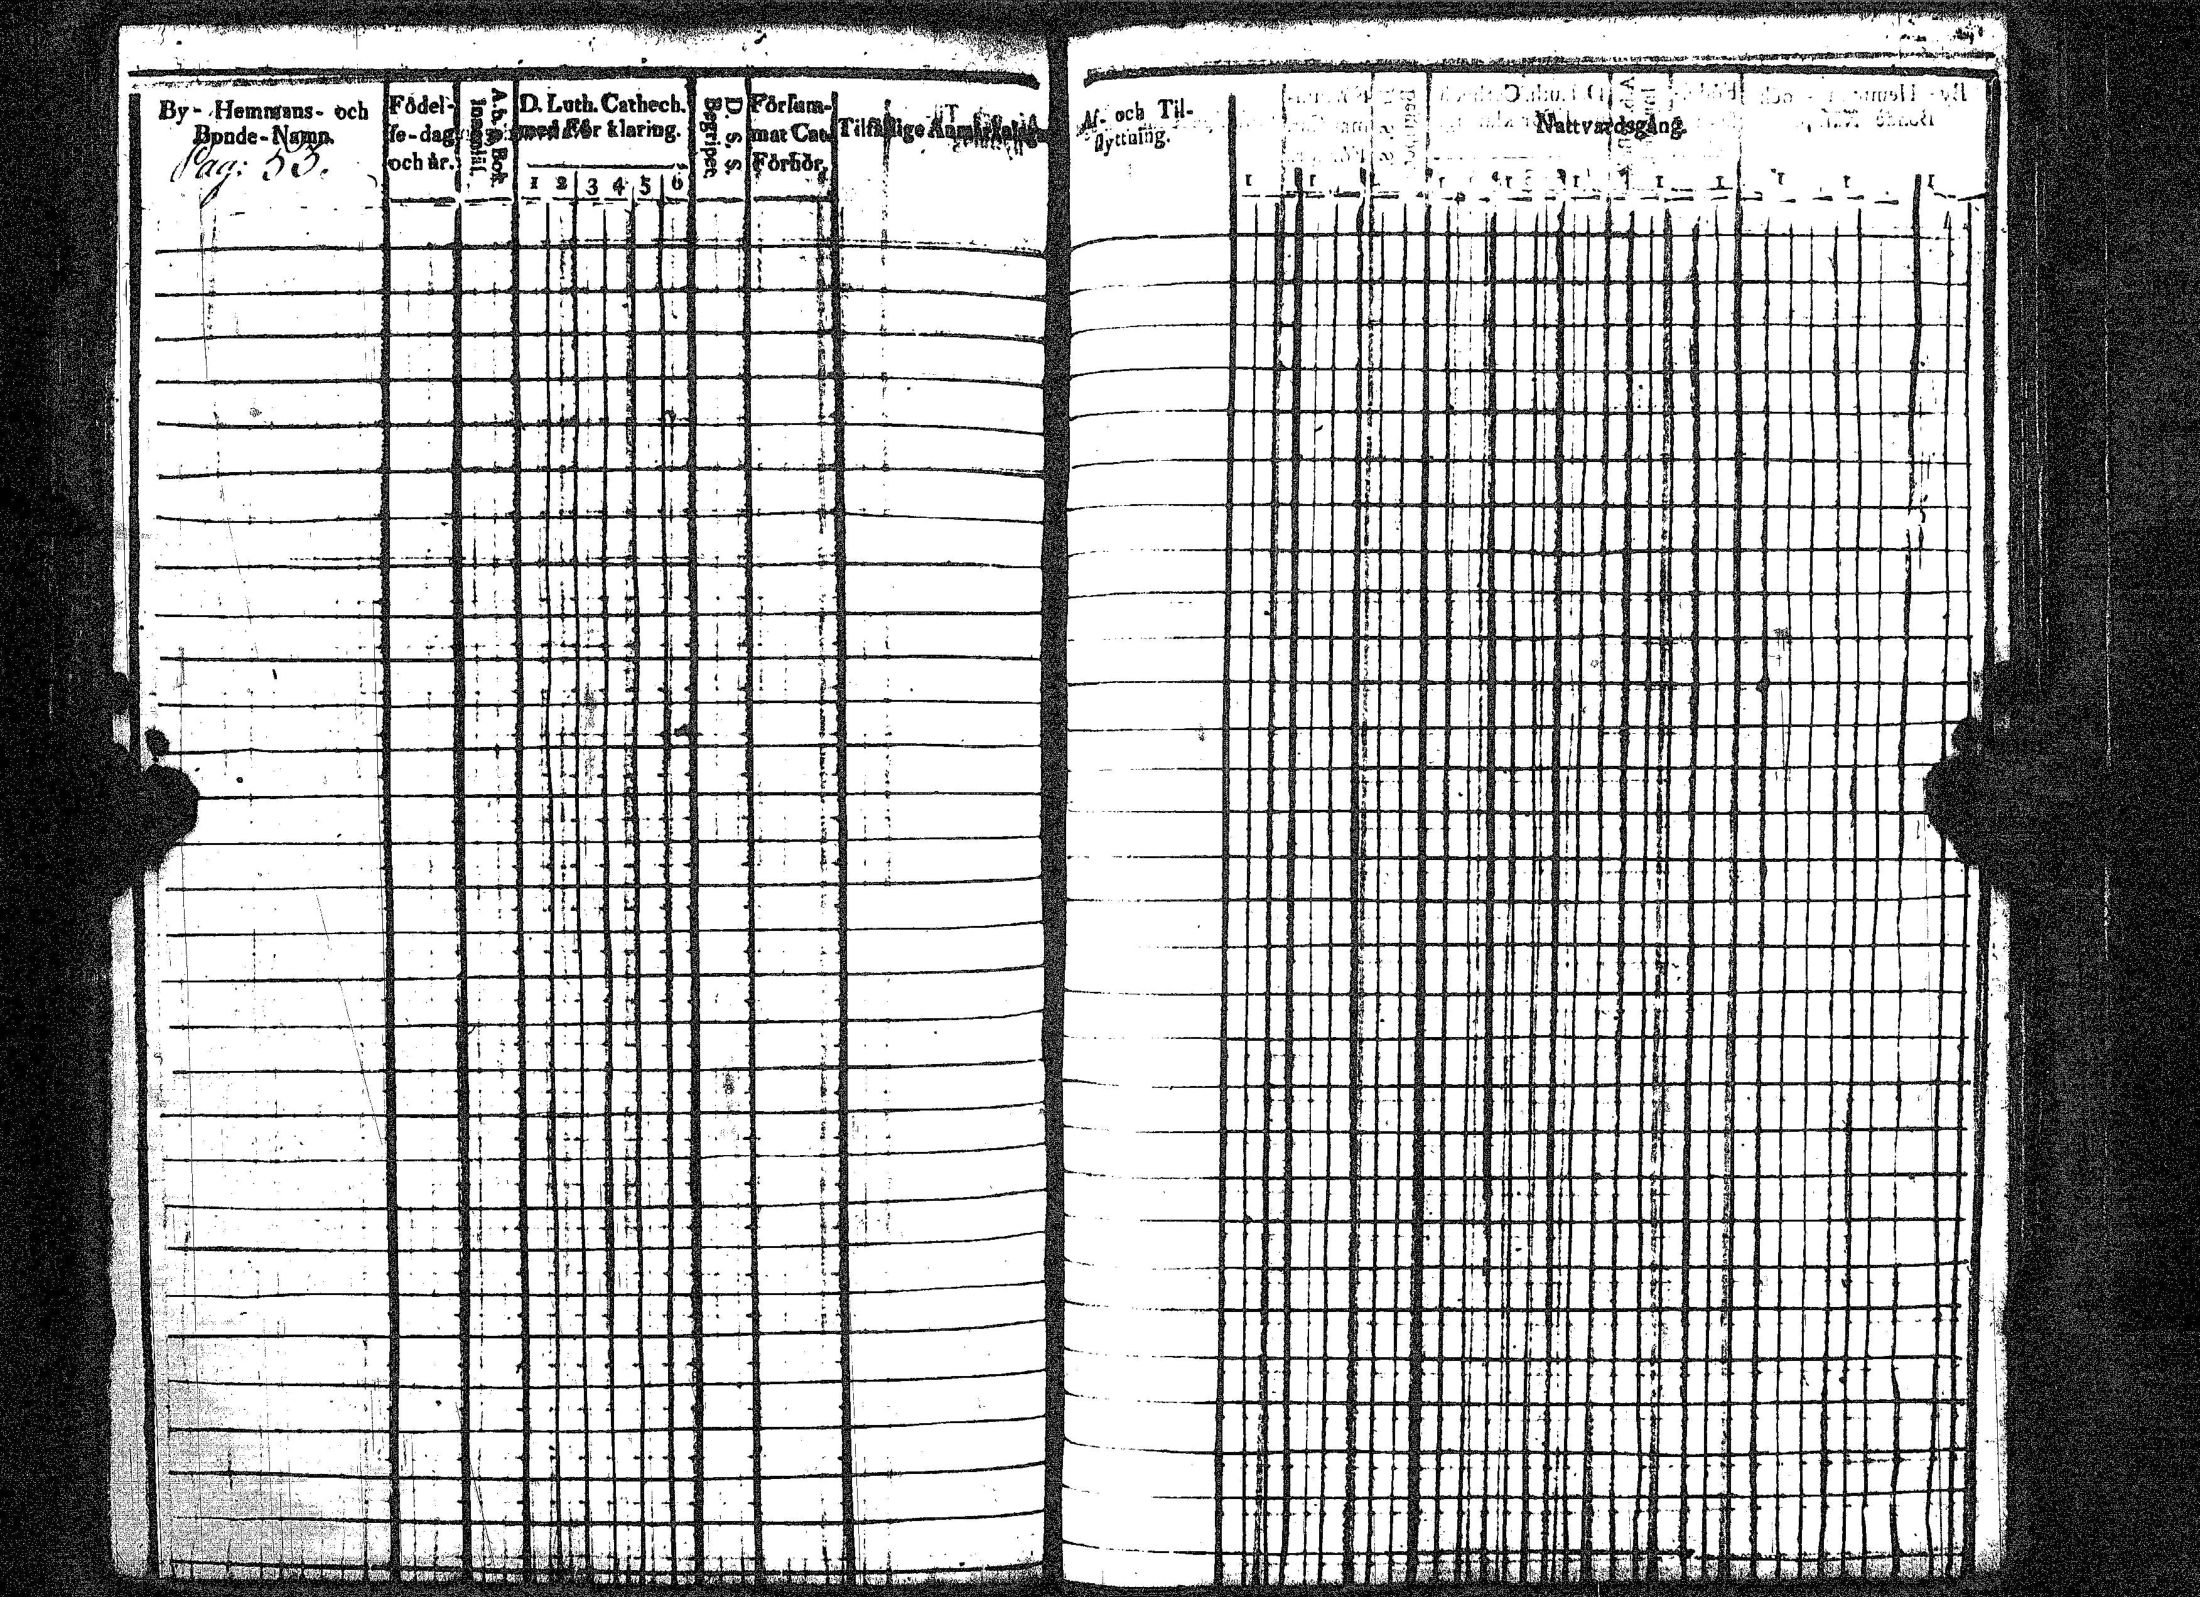 By- Hemmans- och
Bonde-Namn.
Pag: 53.
Födel-
se-dag
och år.
A. b. c. Bok.
innantil.
D. Luth. Cathech.
med För klaring.
1 2 3 4 5 6
D. S. S.
Begripet.
Försum-
mat Cat.
Förhör.
Tilfällige Anmärkningar
Af- och Til-
flyttning.
Nattvardsgång.
1 1 1 1 1 1 1 1 1 1 1